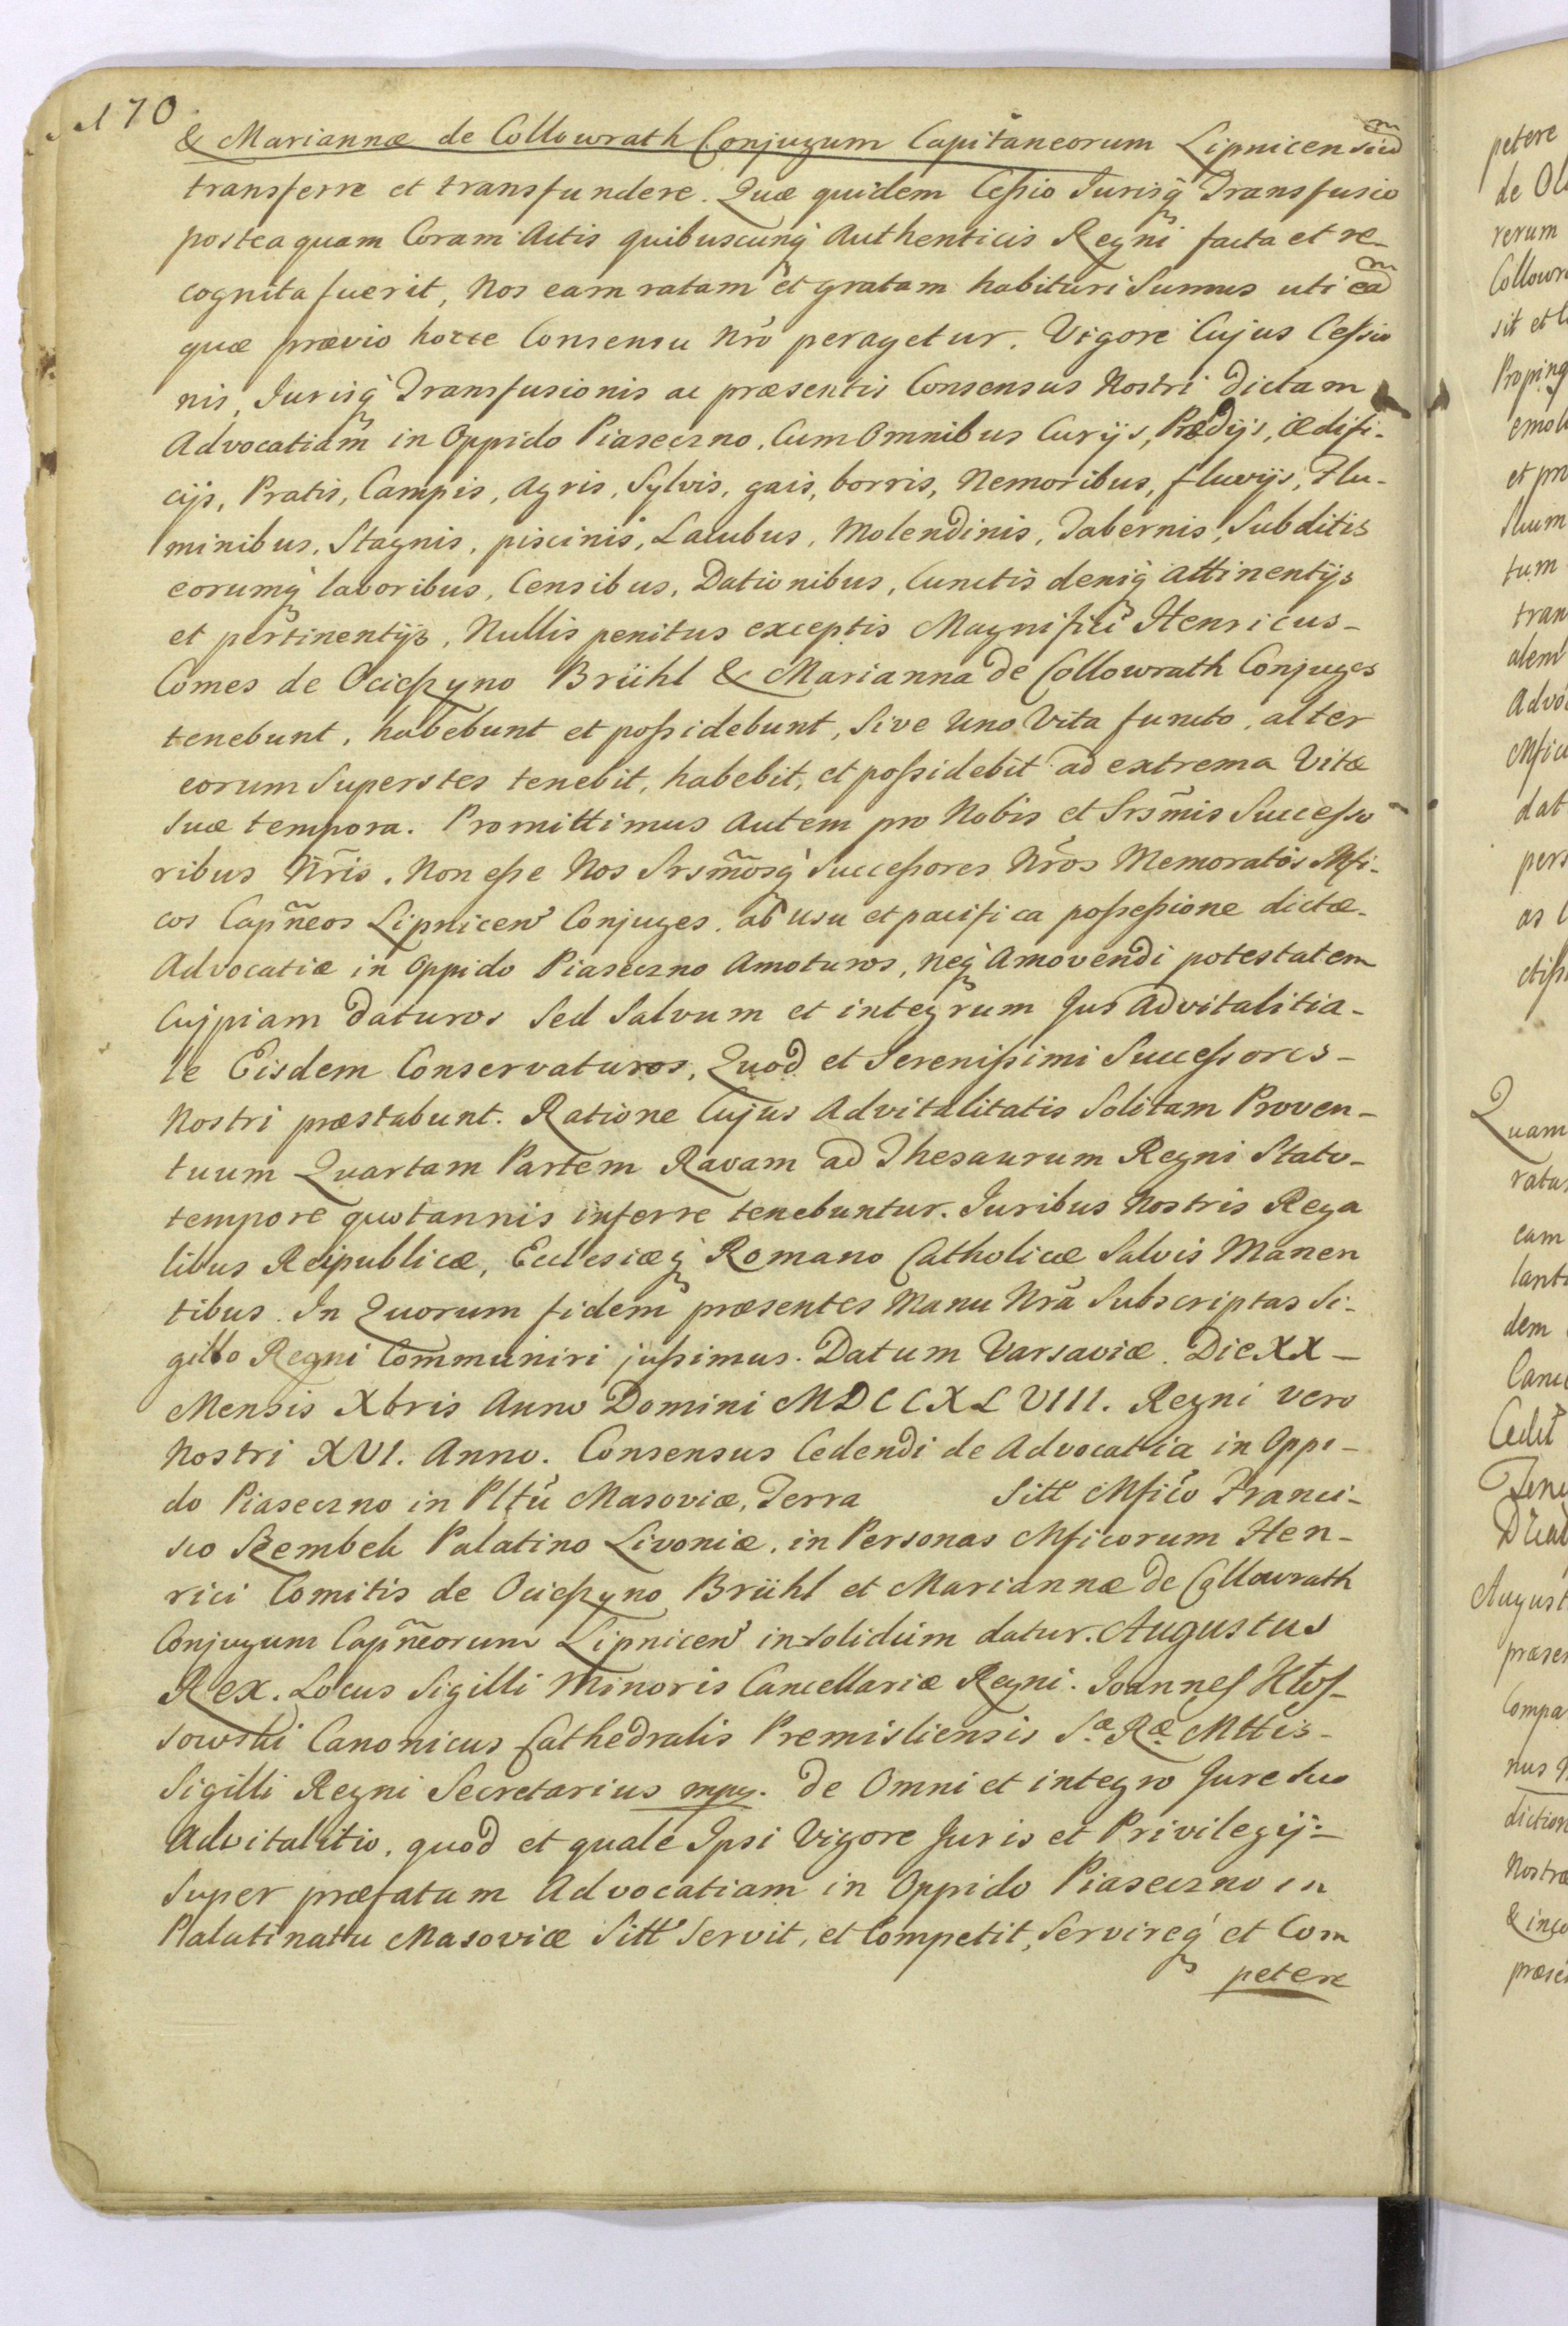 170
& Mariannæ de Collowrath Conjugum Capitaneorum Lipnicensiũ
transferre et transfundere. Quæ quidem Cessio Jurisq̃ Transfusio
postea quam Coram Actis quibuscunq̃ Authenticis Regni facta et re-
cognita fuerit, Nos eam ratam et gratam habituri Sumus uti ea
quæ prævio hocce Consensu nrõ peragetur. Vigore Cujus Cessio
nis, Jurisq̃ Transfusionis ac præsentis Consensus Nostri dictam
Advocatiam in Oppido Piaseczno, Cum Omnibus Curijs, Prædijs, ædifi-
cijs, Pratis, Campis, Agris, Sylvis, gais, borris, Nemoribus, fluvijs, Flu-
minibus, Stagnis, piscinis, Lacubus, Molendinis, Tabernis, Subditis
eorumq̃ laboribus, Censibus, Dationibus, Cunctis deniq̃ attinentijs
et pertinentijs, Nullis penitus exceptis Magnifici Henricus-
Comes de Ocieszyno Brühl & Marianna de Collowrath Conjuges
tenebunt, habebunt et possidebunt, Sive Uno Vita functo, alter
eorum Superstes tenebit, habebit, et possidebit ad extrema Vitæ
Suæ tempora. Promittimus Autem pro Nobis et Srsm̃is Successo
ribus Nr̃is. Non esse Nos Srsm̃osq̃ Successores Nr̃os Memoratos Mfi-
cos Capñeos Lipnicen Conjuges, ab usu et pacifica possessione dictæ-
Advocatiæ in Oppido Piaseczno Amoturos, neq̃ Amovendi potestatem
Cujpiam daturos Sed Salvum et integrum Jus Advitalitia-
le Eisdem Conservaturos, Quod et Serenissimi Successores-
Nostri præstabunt. Ratione Cujus Advitalitatis Solitam Proven-
tuum Quartam Partem Ravam ad Thesaurum Regni Stato-
tempore quotannis inferre tenebuntur. Juribus Nostris Rega
libus Reipublicæ, Ecclesiæq̃ Romano Catholicæ Salvis Manen
tibus. In Quorum fidem præsentes Manu Nrã Subscriptas Si-
gillo Regni Communiri jussimus. Datum Varsaviæ. Die XX-
Mensis Xbris Anno Domini MDCCXLVIII. Regni vero
Nostri XVI. Anno. Consensus Cedendi de Advocatia in Oppi-
do Piaseczno in Pltũ Masoviæ, Terra Sitt Mficõ Franci-
sco Szembek Palatino Livoniæ, in Personas Mficorum Hen-
rici Comitis de Ocieszyno Brühl et Mariannæ de Collowrath
Conjugum Capñeorum Lipnicen in solidum datur. Augustus
Rex. Locus Sigilli Minoris Cancellariæ Regni. Joannes Kłos-
sowski Canonicus Cathedralis Premisliensis Sæ Ræ Mttis-
Sigilli Regni Secretarius mpp. de Omni et integro Jure Suo
Advitalitio, quod et quale Ipsi Vigore Juris et Privilegij-
Super præfatam Advocatiam in Oppido Piaseczno in
Palatinatu Masoviæ Sitt Servit, et Competit, Servireq̃ et Com
petere
petere
de
rerum
sit et
et pro
tum
tran
alem
Advo
dat
pers
as
Quam
eam
dem
August
præsen
Compa
nus
diction
Nostræ